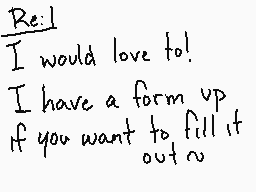 Re:1
I would love to!
I have a form up
if you want to fill it
out ~